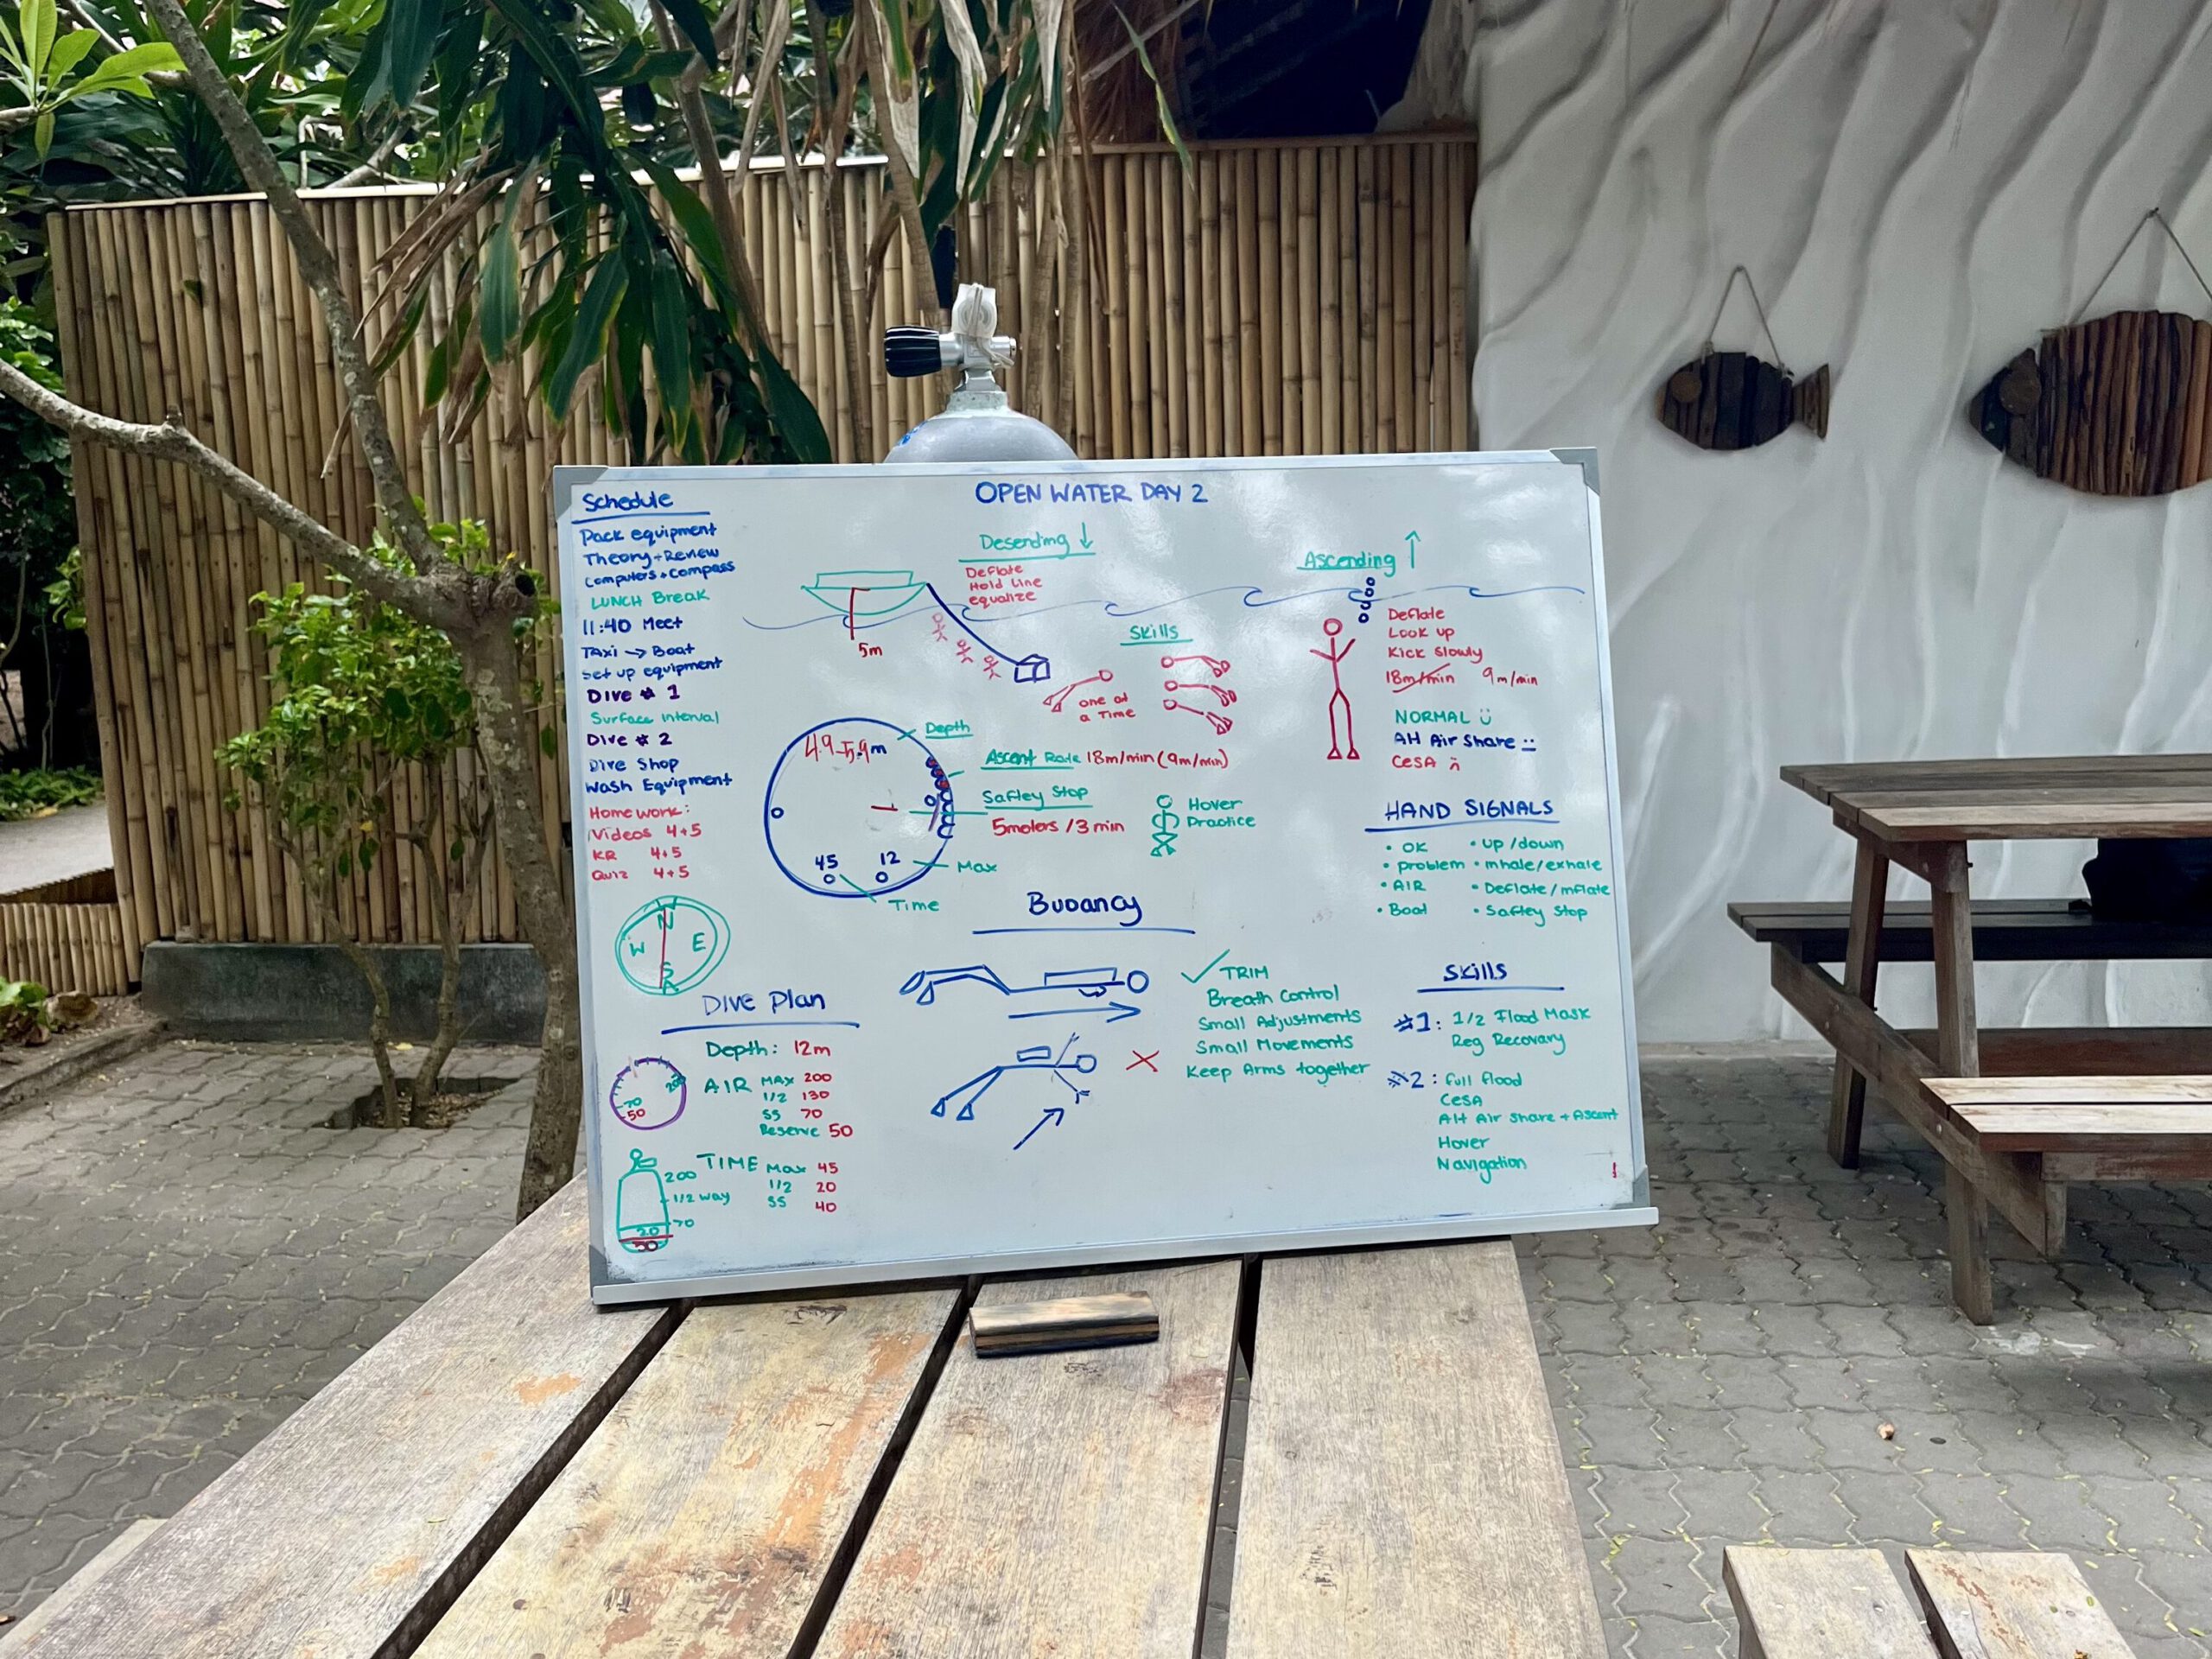 OPEN WATER DAY 2
Schedule
Pack equipment
Theory + Review
Computers + Compass
LUNCH Break
11:40 Meet
TAXi → Boat
Set up equipment
Dive # 1
Surface interval
Dive # 2
Dive Shop
Wash Equipment
Homework:
Videos 4+5
KR 4+5
Quiz 4+5
N
W E
S
Dive Plan
Depth: 12m
AIR MAX 200
1/2 130
SS 70
Reserve 50
200
70
50
TIME Max 45
1/2 20
SS 40
200
1/2 way
70
20
50
Desending ↓
Deflate
Hold Line
equalize
5m
Skills
one at
a Time
4.9-5.9m
45 12
Depth
Ascent Rate 18m/min (9m/min)
Saftey Stop
5meters / 3 min
Max
Time
Hover
Practice
Buoancy
✓ TRIM
Breath Control
Small Adjustments
Small Movements
Keep Arms together
X
Ascending ↑
Deflate
Look up
Kick Slowly
18m/min 9m/min
NORMAL
AH Air Share
CESA
HAND SIGNALS
• OK • up / down
• problem • inhale/exhale
• AIR • Deflate / inflate
• Boat • Saftey Stop
Skills
#1: 1/2 Flood Mask
Reg Recovary
#2: full flood
CESA
AH Air Share + Ascent
Hover
Navigation